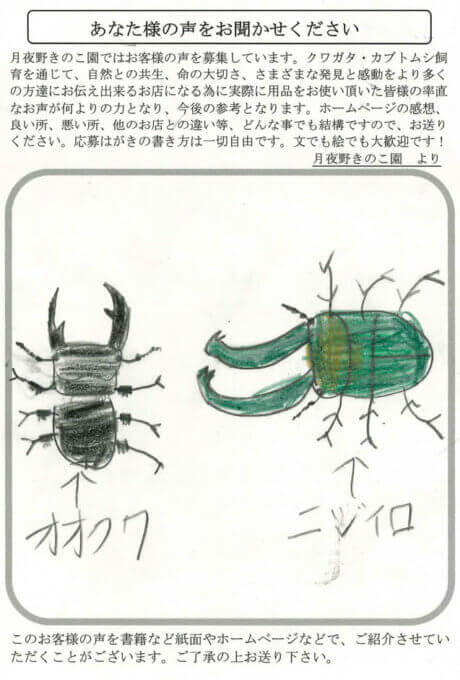 あなた様の声をお聞かせください
月夜野きのこ園ではお客様の声を募集しています。クワガタ・カブトムシ飼
育を通じて、自然との共生、命の大切さ、さまざまな発見と感動をより多く
の方達にお伝え出来るお店になる為に実際に用品をお使い頂いた皆様の率直
なお声が何よりの力となり、今後の参考となります。ホームページの感想、
良い所、悪い所、他のお店との違い等、どんな事でも結構ですので、お送り
ください。応募はがきの書き方は一切自由です。文でも絵でも大歓迎です！
月夜野きのこ園　より
オオクワ
ニジイロ
このお客様の声を書籍など紙面やホームページなどで、ご紹介させてい
ただくことがございます。ご了承の上お送り下さい。